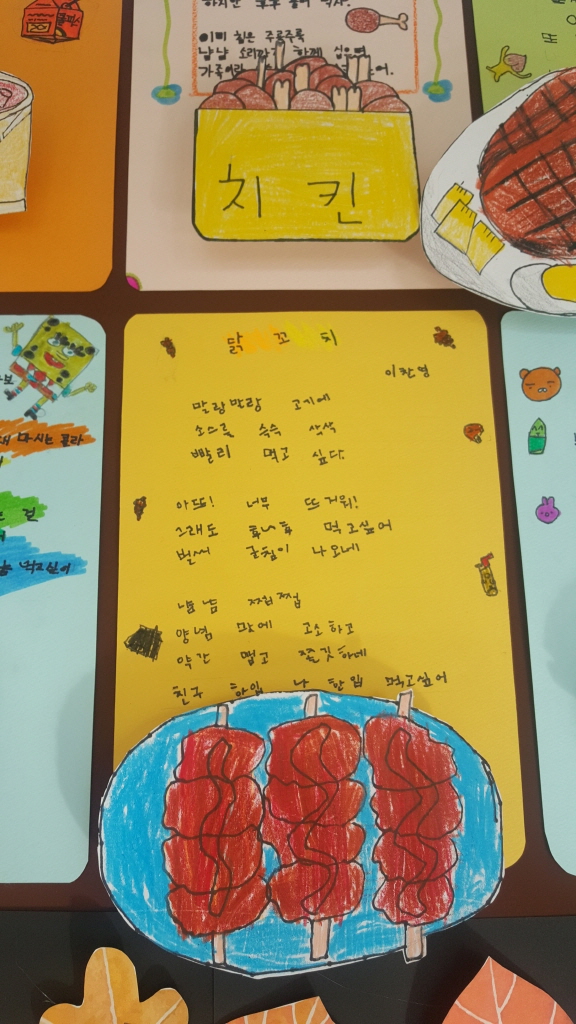 이미 침은 주룩주룩
냠냠 소리 함께
치킨
닭꼬치
이찬영
말랑말랑 고기에
소스를 슥슥 삭삭
빨리 먹고 싶다.
아뜨! 너무 뜨거워!
그래도 후나후 먹고싶어
벌써 군침이 나오네
냠냠 쩝쩝
양념 맛에 고소하고
약간 맵고 쫄깃하네
친구 한입 나 한입 먹고싶어
마시는 콜라
먹고싶어
또